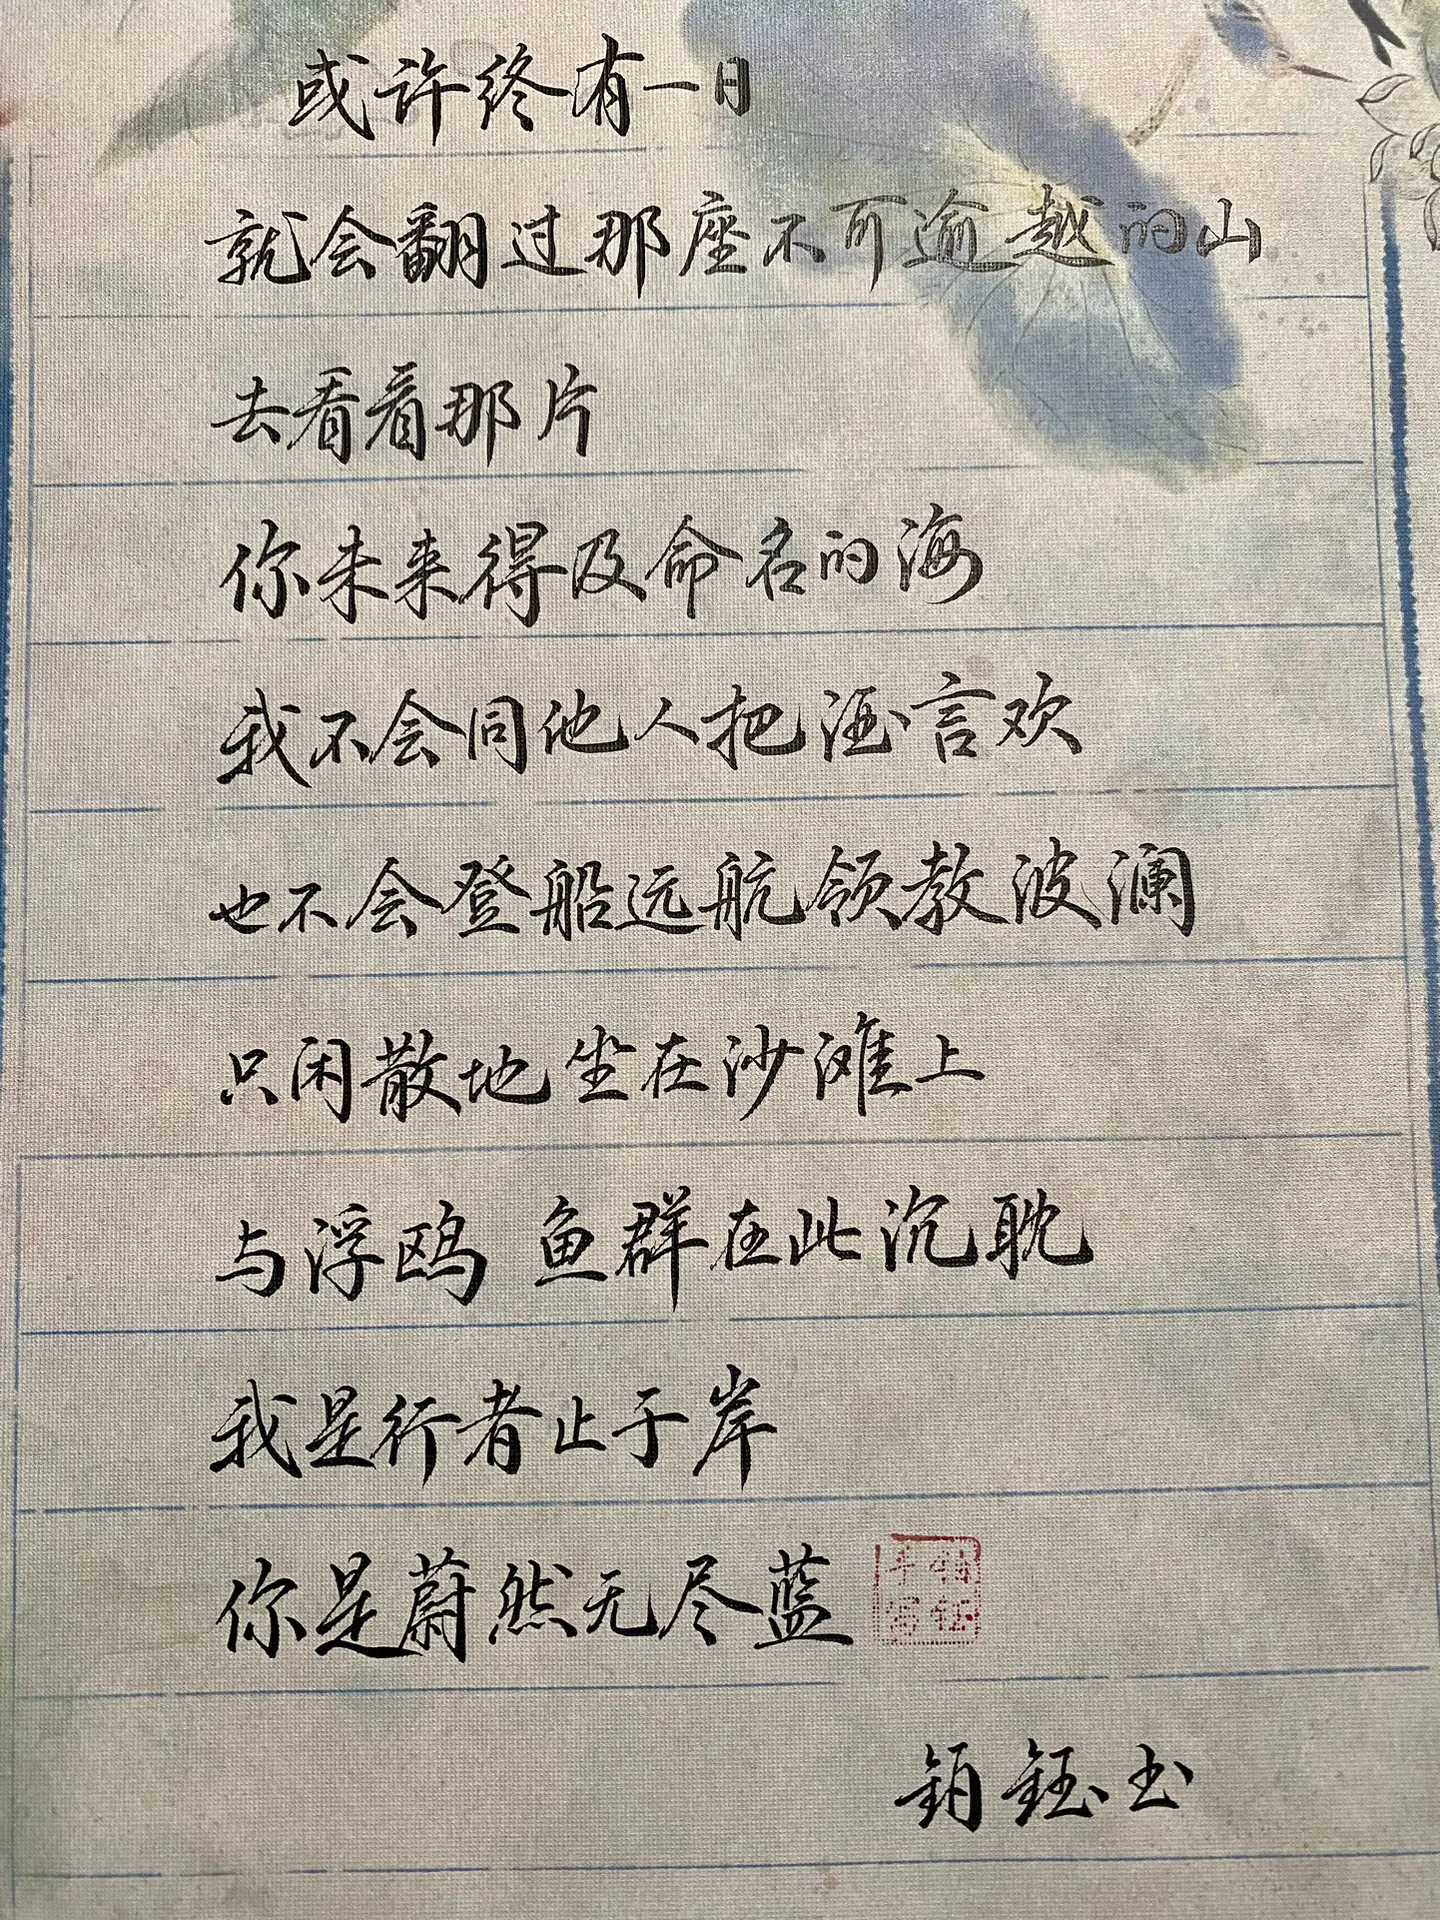 或许终有一日
就会翻过那座不可逾越的山
去看看那片
你未来得及命名的海
我不会同他人把酒言欢
也不会登船远航领教波澜
只闲散地坐在沙滩上
与浮鸥 鱼群在此沉耽
我是行者止于岸
你是蔚然无尽蓝
钰书